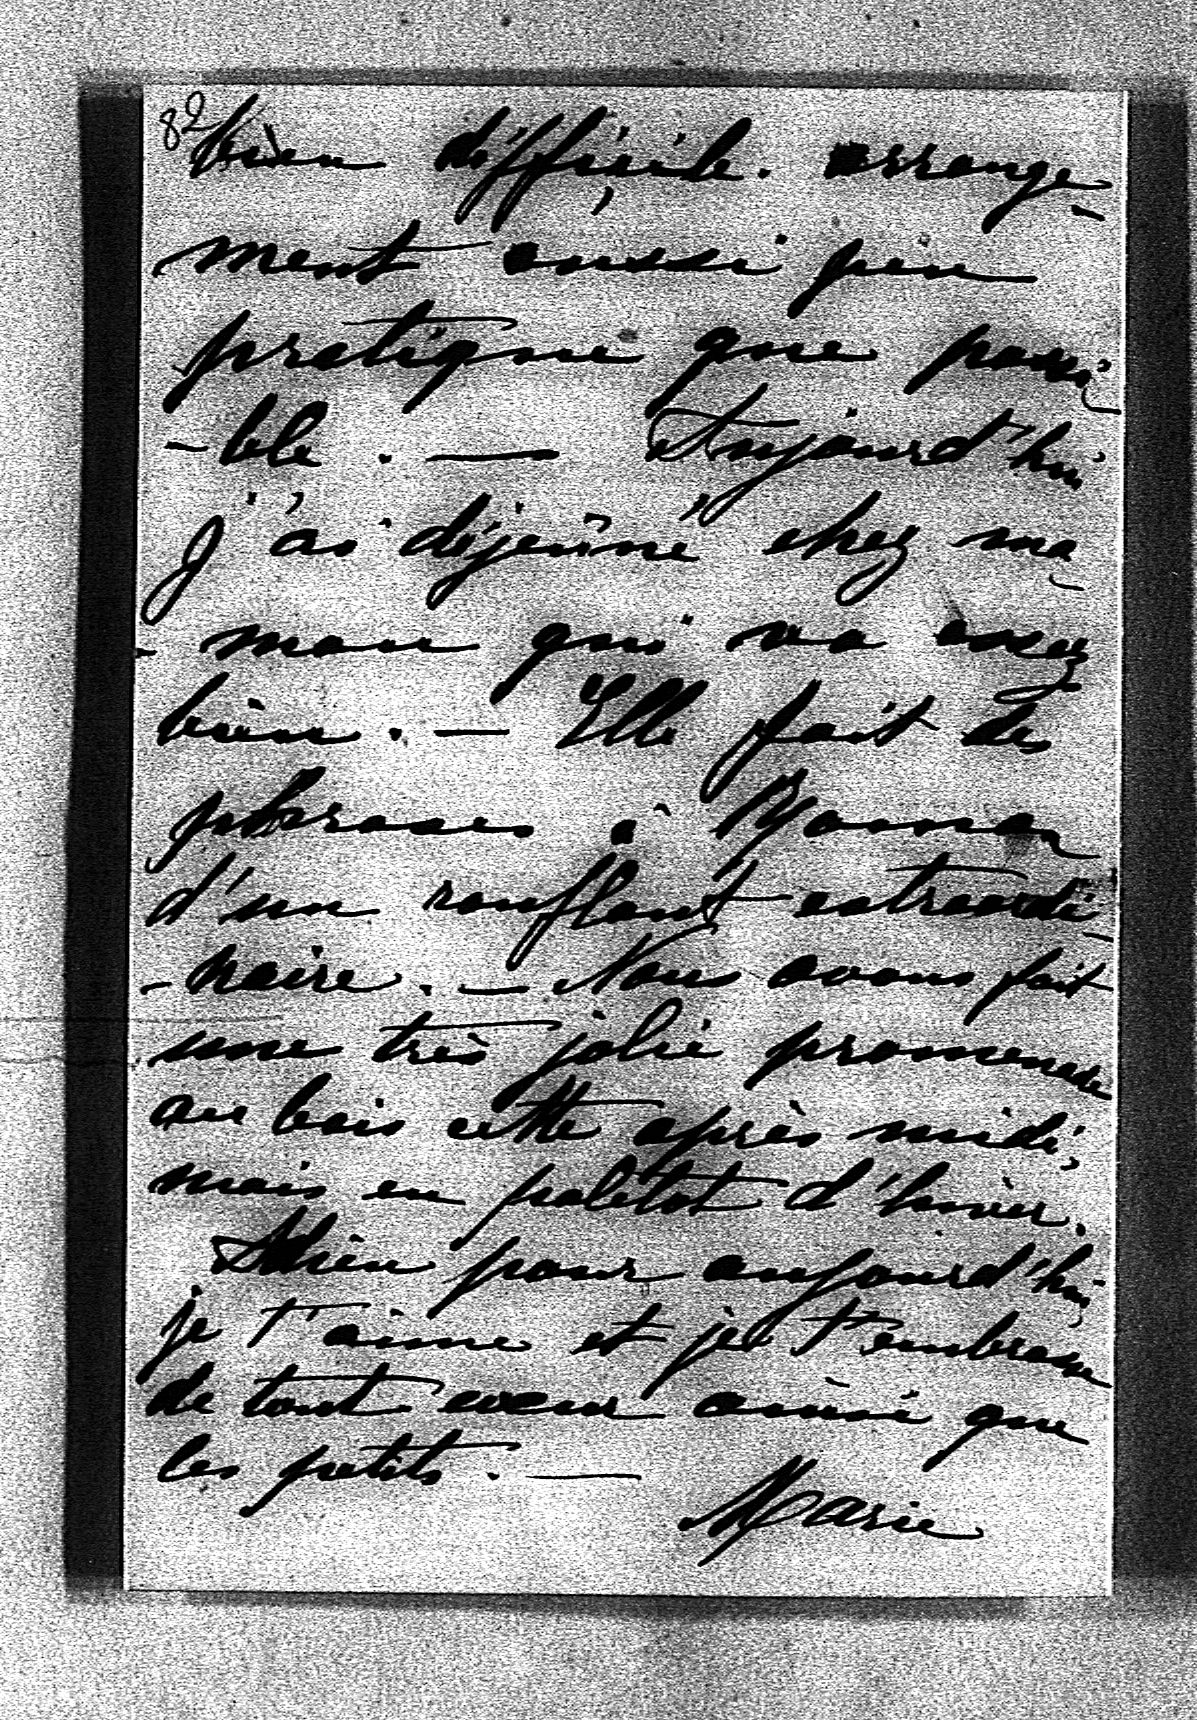 82
bien difficile. arrange-
ment aussi peu
pratique que possi-
-ble. — Aujourd'hui
j'ai déjeûné chez ma-
-man qui va assez
bien. — Elle fait des
phrases à
d'un ronflant extraordi-
-naire. — Nous avons fait
une très jolie promenade
au bois cette après midi,
mais en paletot d'hiver.
Adieu pour aujourd'hui,
je t'aime et je t'embrasse
de tout cœur ainsi que
les petits. —
Marie